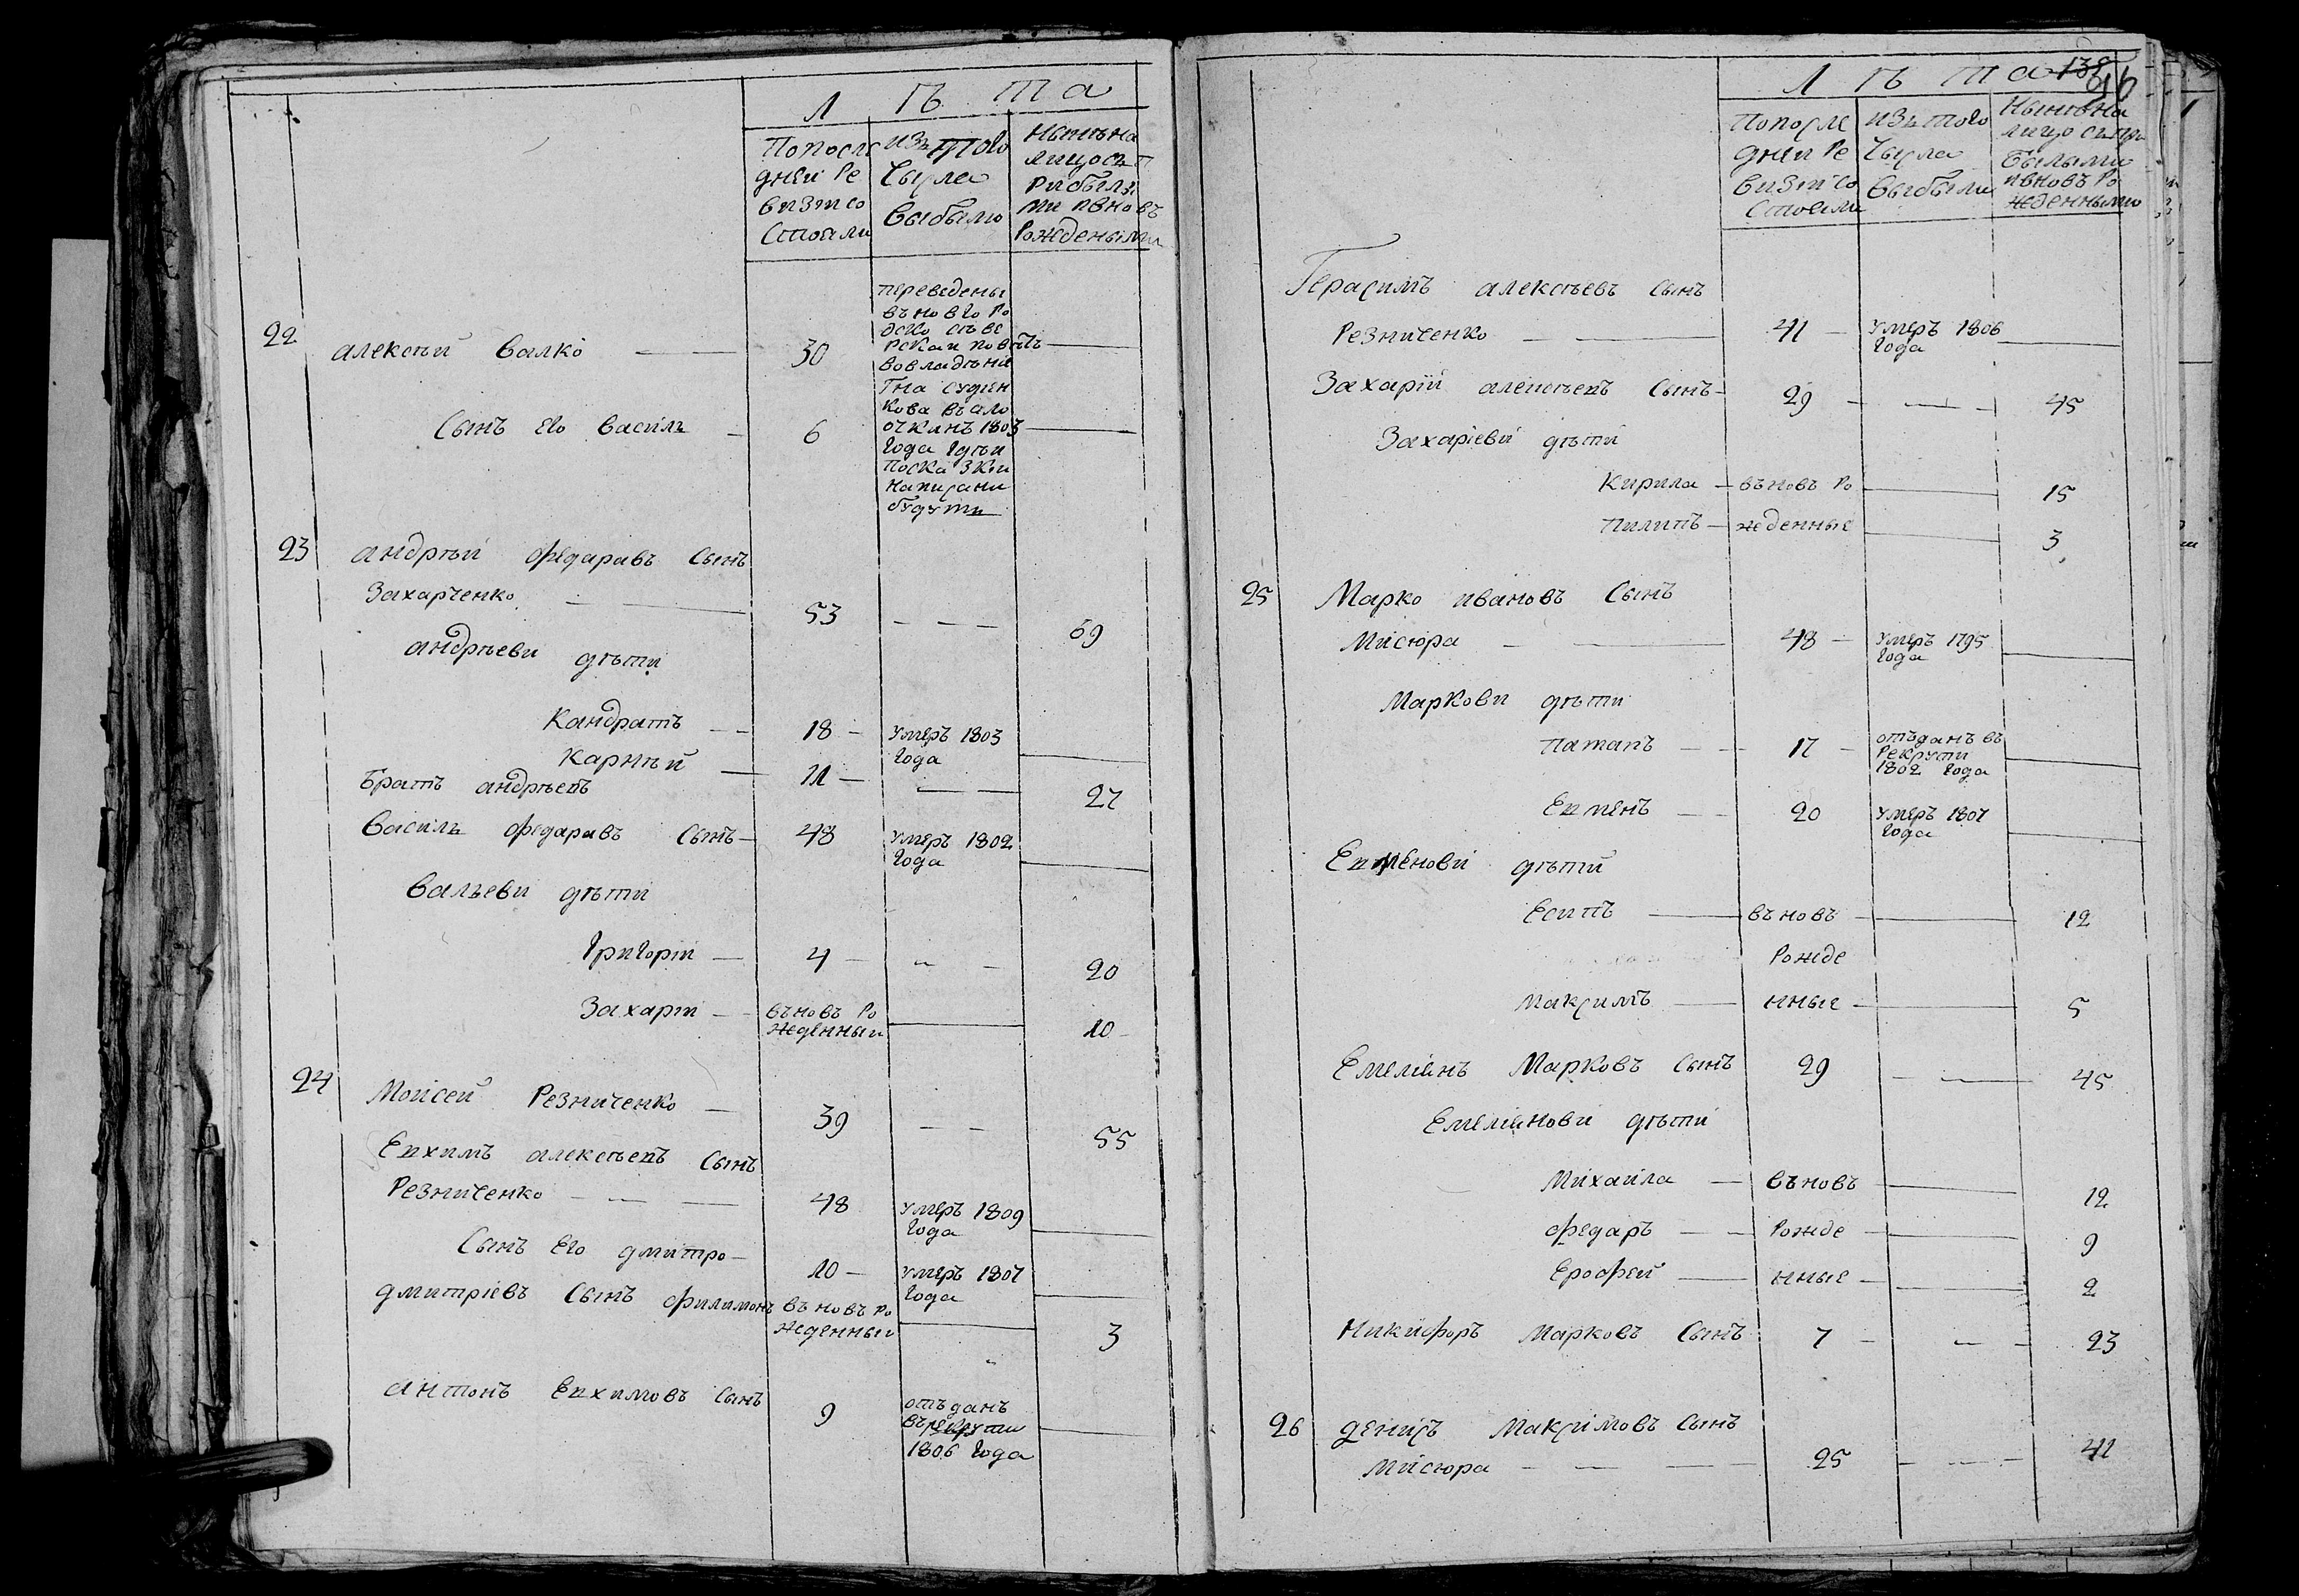 Л ѣ т а
По после
дней ре
визти со
стояли
изъ того
числа
выбыло
Нынѣ на
лицо съ п
рибылы
ми и вновъ
рождеными
22
алексѣй Валко — 30
переведены
въ новго ро
дско сѣве
рской повѣтъ
во владѣние
Гна судиен
кова въ
1803
года гдѣ и
по ска зки
написани
будути
Сынъ Его Василь — 6
23
андрѣй Федаравъ Сынъ
Захарченко — 53 — — — 69
андрѣеви дѣти
Кандратъ — 18 — умеръ 1803
года
Карнѣй — 11 — — 27
Братъ андрѣевъ
Василь Федаравъ Сынъ — 48 умеръ 1802
года
Васильеви дѣти
Григорій — 4 — — 20
Захарій — въновъ ро
жденный — 10
24
Моисей Резниченко — 39 — — 55
Евхимъ алексѣевъ Сынъ
Резниченко — — — 48 умеръ 1809
года
Сынъ Его дмитро — 10 — умеръ 1807
года
дмитріевъ Сынъ Филимонъ въновъ ро
жденный — 3
антонъ Евхимовъ Сынъ 9 отъданъ
въ рекрути
1806 года
138
96
Л ѣ т а
По после
дней ре
визти со
стояли
изъ того
числа
выбыли
Нынѣ на
лицо съ при
былыми
и вновъ ро
жденными
Герасимъ алексѣевъ Сынъ
Резниченко — — 41 — умеръ 1806
года
Захарій алексѣевъ Сынъ — 29 — — — 45
Захаріеви дѣти
Кирила — въновъ ро — 15
Пилипъ — жденные — 3
25
Марко ивановъ Сынъ
Мисюра — — 48 — умеръ 1795
года
Маркови дѣти
Патапъ — — 17 — отъданъ въ
рекрути
1802 года
Евменъ — — 20 умеръ 1807
года
Евменови дѣти
Есипъ — въновъ — 12
рожде
Максимъ — нные — 5
Емелианъ Марковъ Сынъ 29 — — 45
Емелианови дѣти
Михайла — въновъ — 12
Федаръ — — рожде — 9
Ерофей — нные — 2
Никифоръ Марковъ Сынъ 7 — — — 23
26
денисъ Максимовъ Сынъ
Мисюра — — — 25 — — — 41